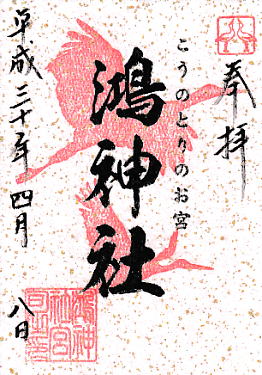 奉拝
こうのとりのお宮
鴻神社
平成三十年四月八日